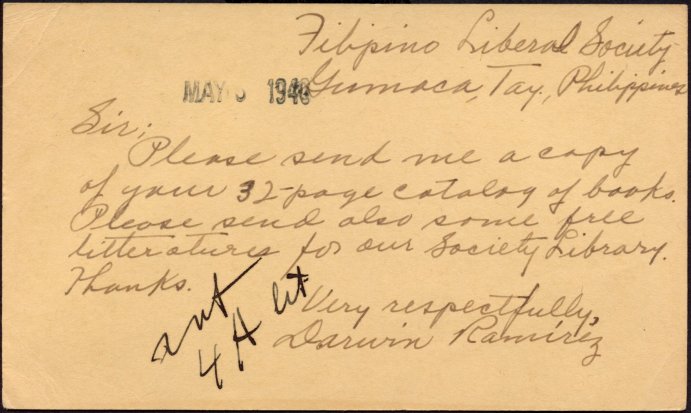 Filipino Liberal Society
Gumaca, Tay., Philippines
MAY 1948
Sir;
Please send me a copy
of your 32-page catalog of books.
Please send also some free
litteratures for our Society Library.
Thanks.
Very respectfully,
Darwin Ramírez
4 A lit